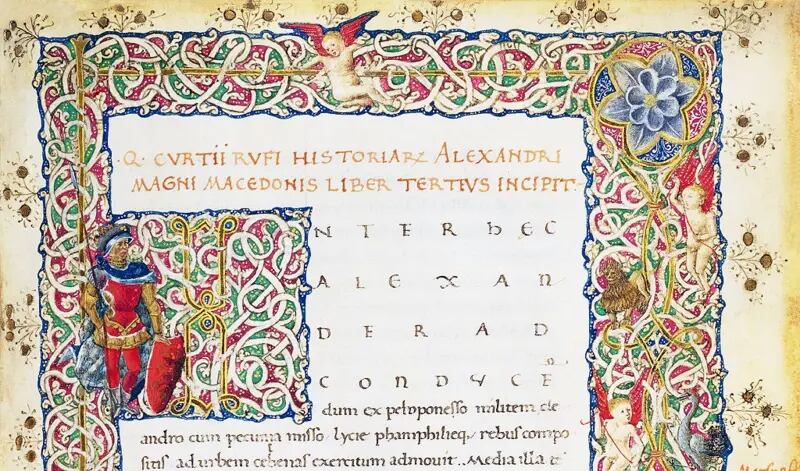 Q. CVRTII RVFI HISTORIARꝜ ALEXANDRI
MAGNI MACEDONIS LIBER TERTIVS INCIPIT.
INTER HEC
ALEXAN
DER AD
CONDVCE
dum ex peloponesso militem cle
andro cum pecunia misso lycie phamphilieq. rebus compo
sitis ad urbem celenas exercitum admouit. Media illa